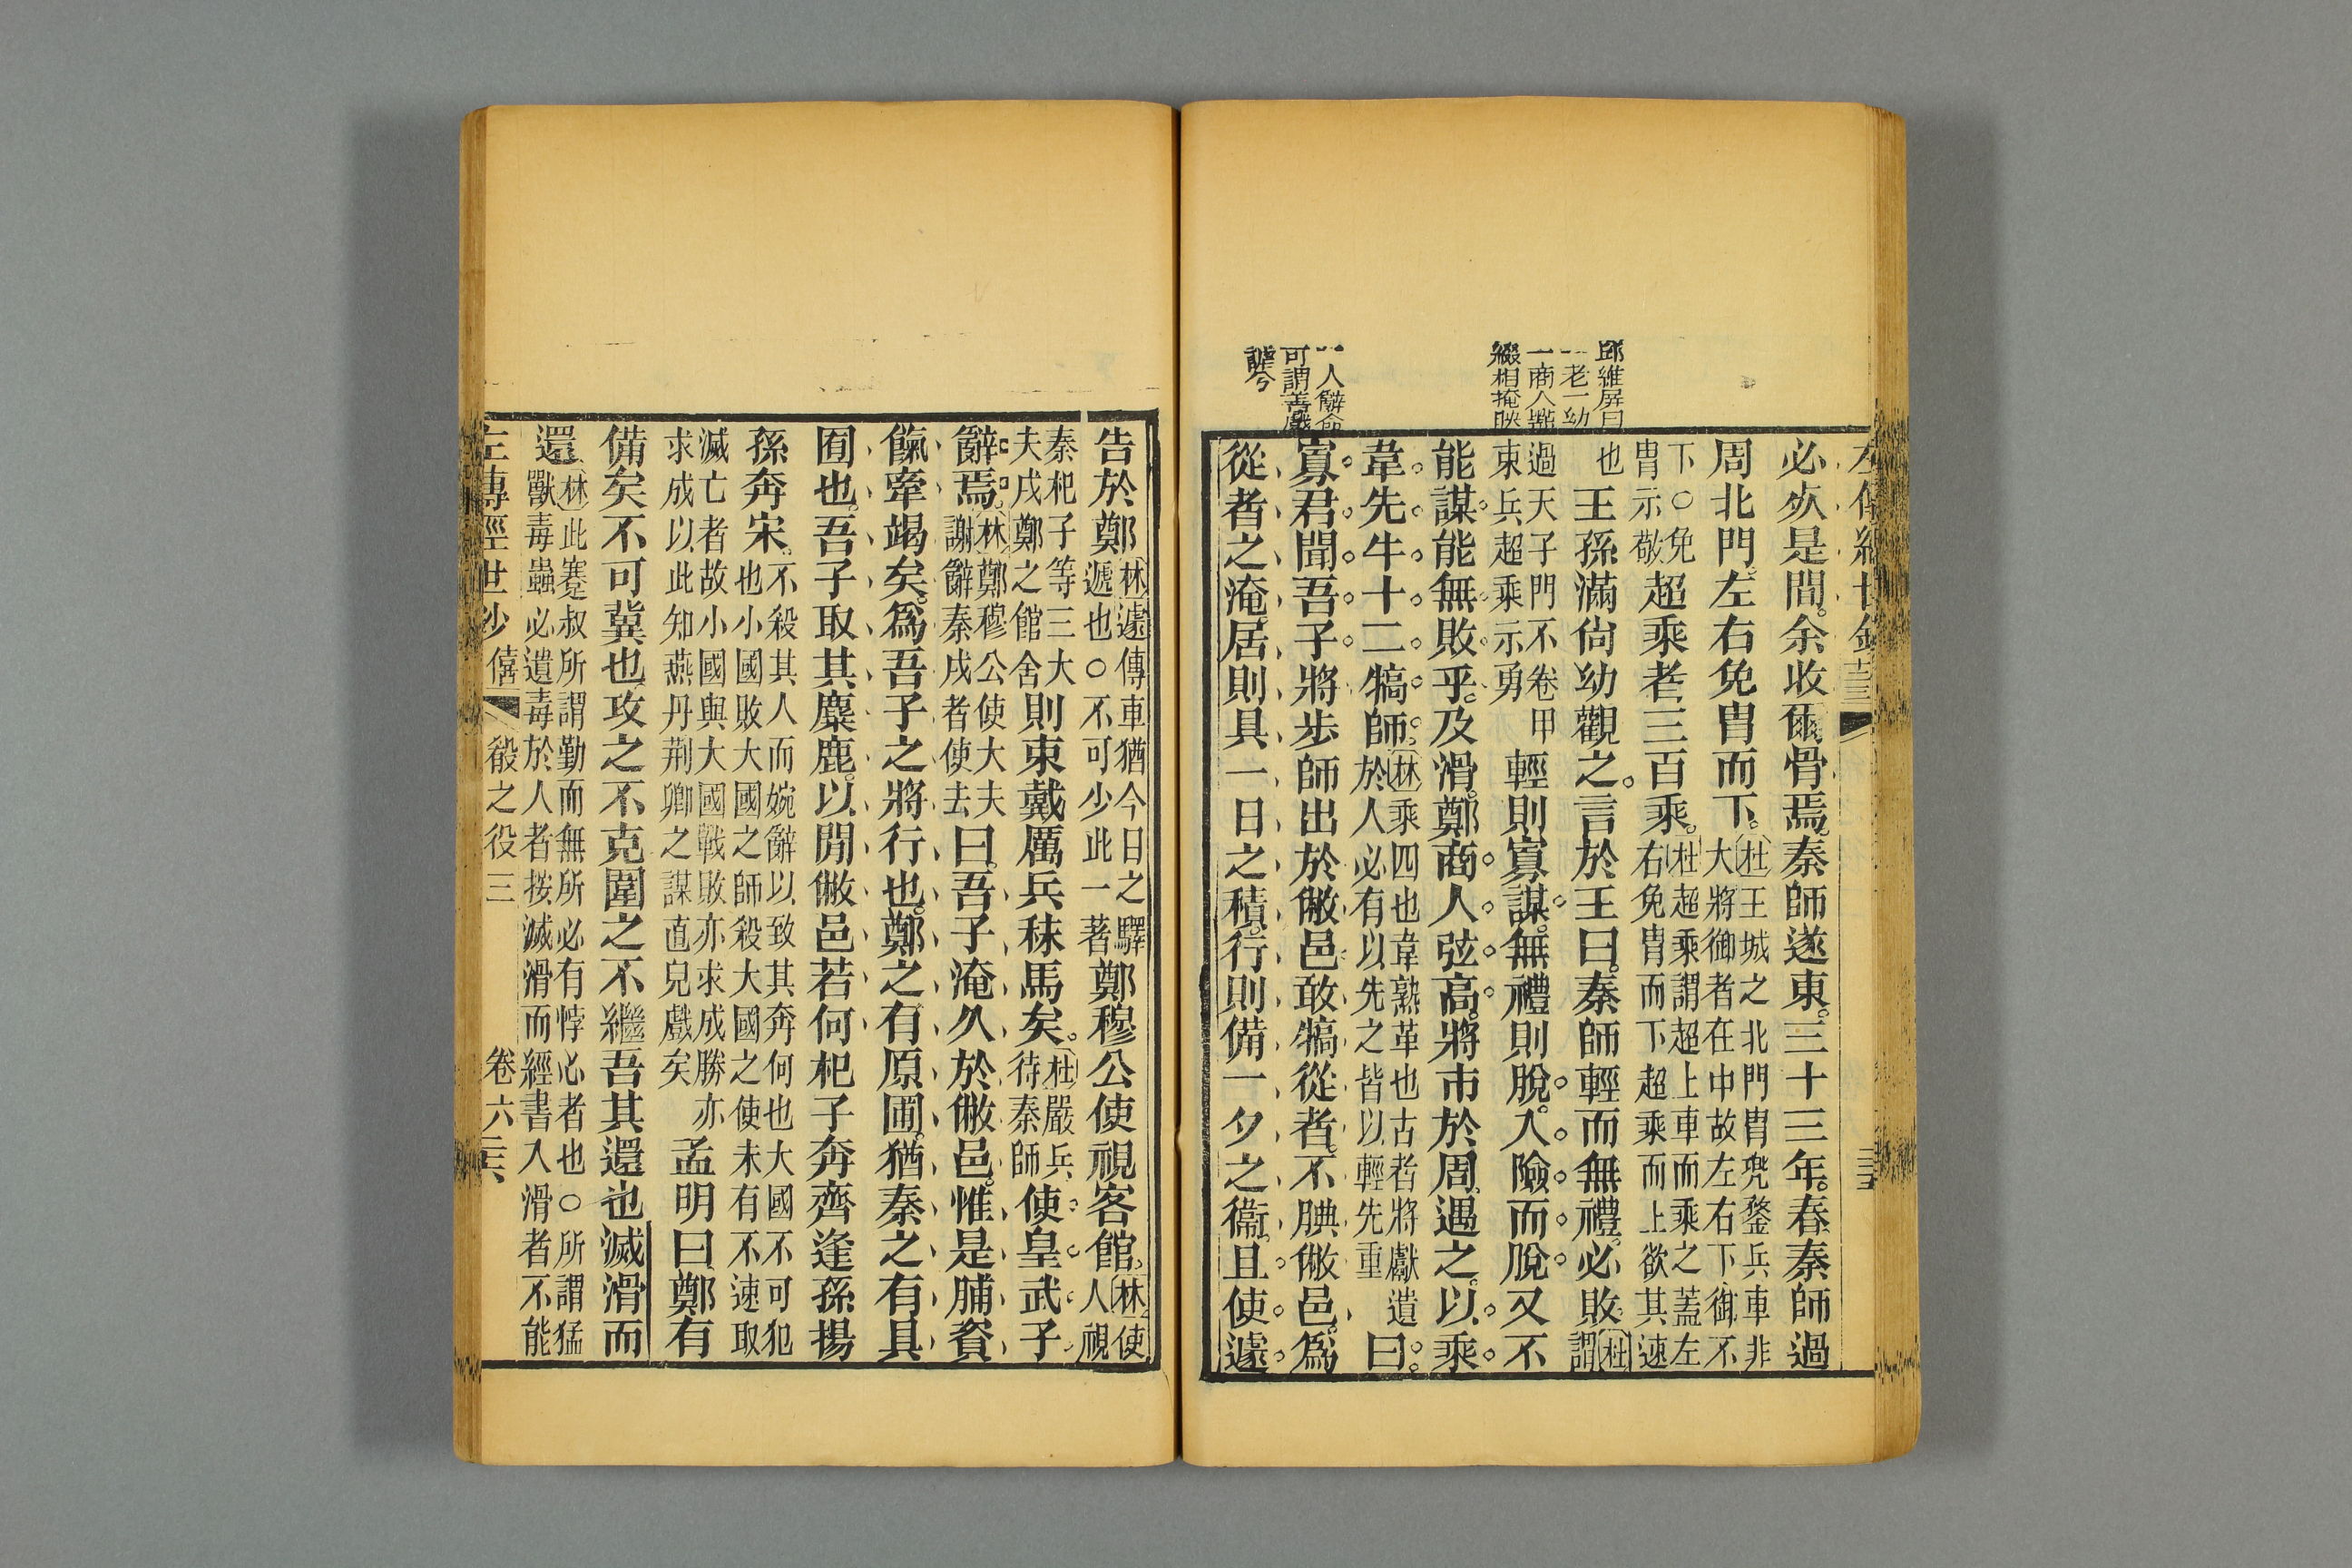 邱維屏曰
一老一幼
一商人點
綴相掩映
一人辭命
可謂善戲
謔兮
必死是間余收爾骨焉秦師遂東三十三年春秦師過
周北門左右免冑而下
杜王城之北門冑兜鍪兵車非
大將御者在中故左右下御不
下○免
冑示敬
超乘者三百乘
杜超乘謂超上車而乘之蓋左
右免冑而下超乘而上欲其速
也
王孫滿尚幼觀之言於王曰秦師輕而無禮必敗
杜
謂
過天子門不卷甲
束兵超乘示勇
輕則寡謀無禮則脫入險而脫又不
能謀能無敗乎及滑鄭商人弦高將市於周遇之以乘
韋先牛十二犒師
林乘四也韋熟革也古者將獻遺
於人必有以先之皆以輕先重
曰
寡君聞吾子將步師出於敝邑敢犒從者不腆敝邑爲
從者之淹居則具一日之積行則備一夕之衞且使遽
告於鄭
林遽傳車猶今日之驛
遞也○不可少此一著
鄭穆公使視客館
林使
人視
秦杞子等三大
夫戍鄭之館舍
則束載厲兵秣馬矣
杜嚴兵
待秦師
使皇武子
辭焉
林鄭穆公使大夫
謝辭秦戍者使去
曰吾子淹久於敝邑惟是脯資
餼牽竭矣爲吾子之將行也鄭之有原圃猶秦之有具
囿也吾子取其麋鹿以閒敝邑若何杞子奔齊逢孫揚
孫奔宋
不殺其人而婉辭以致其奔何也大國不可犯
也小國敗大國之師殺大國之使未有不速取
滅亡者故小國與大國戰敗亦求成勝亦
求成以此知燕丹荆卿之謀直兒戲矣
孟明曰鄭有
備矣不可冀也攻之不克圍之不繼吾其還也滅滑而
還
林此蹇叔所謂勤而無所必有悖必者也○所謂猛
獸毒蟲必遺毒於人者按滅滑而經書入滑者不能
左傳經世鈔 僖 殽之役三 卷六